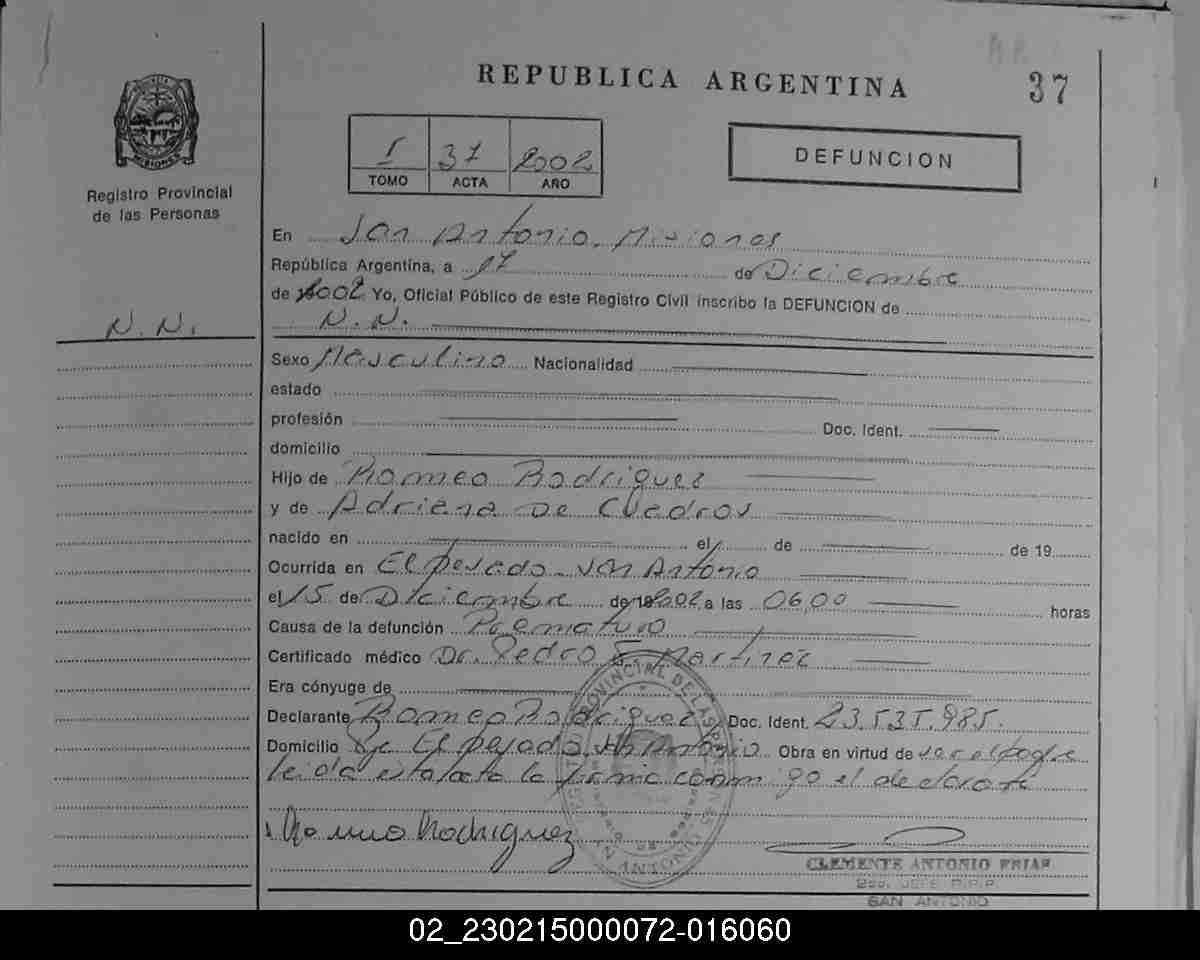 REPUBLICA ARGENTINA
37
MISIONES
Registro Provincial
de las Personas
I 37 2002
TOMO ACTA AÑO
DEFUNCION
En San Antonio, Misiones
República Argentina, a 17 de Diciembre
de 2002 Yo, Oficial Público de este Registro Civil inscribo la DEFUNCION de
N. N.
N. N.
Sexo Masculino Nacionalidad
estado
profesión Doc. Ident.
domicilio
Hijo de Romeo Rodriguez
y de Adriana De Cuadros
nacido en el de de 19
Ocurrida en El pesado - San Antonio
el 15 de Diciembre de 2002 a las 06,00 horas
Causa de la defunción Prematuro
Certificado médico Dr. Pedro E. Martinez
Era cónyuge de
Declarante Romeo Rodriguez Doc. Ident. 23.535.985.
Domicilio El pesado San Antonio Obra en virtud de ser el padre
leida esta acta la firma conmigo el declarante
Romeo Rodriguez
PROVINCIAL DE LAS PERSONAS
SAN ANTONIO
CLEMENTE ANTONIO FRIAS
SAN ANTONIO
02_230215000072-016060